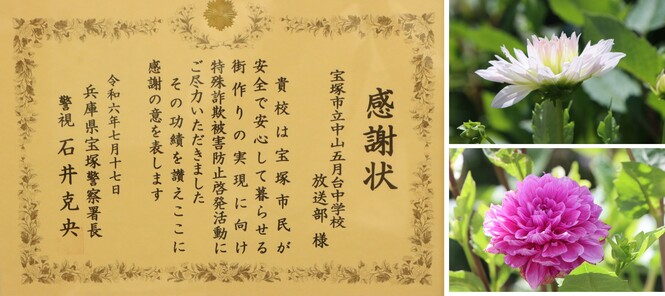 感謝状
宝塚市立中山五月台中学校
放送部 様
貴校は宝塚市民が
安全で安心して暮らせる
街作りの実現に向け
特殊詐欺被害防止啓発活動に
ご尽力いただきました
その功績を讃えここに
感謝の意を表します
令和六年七月十七日
兵庫県宝塚警察署長
警視 石井克央